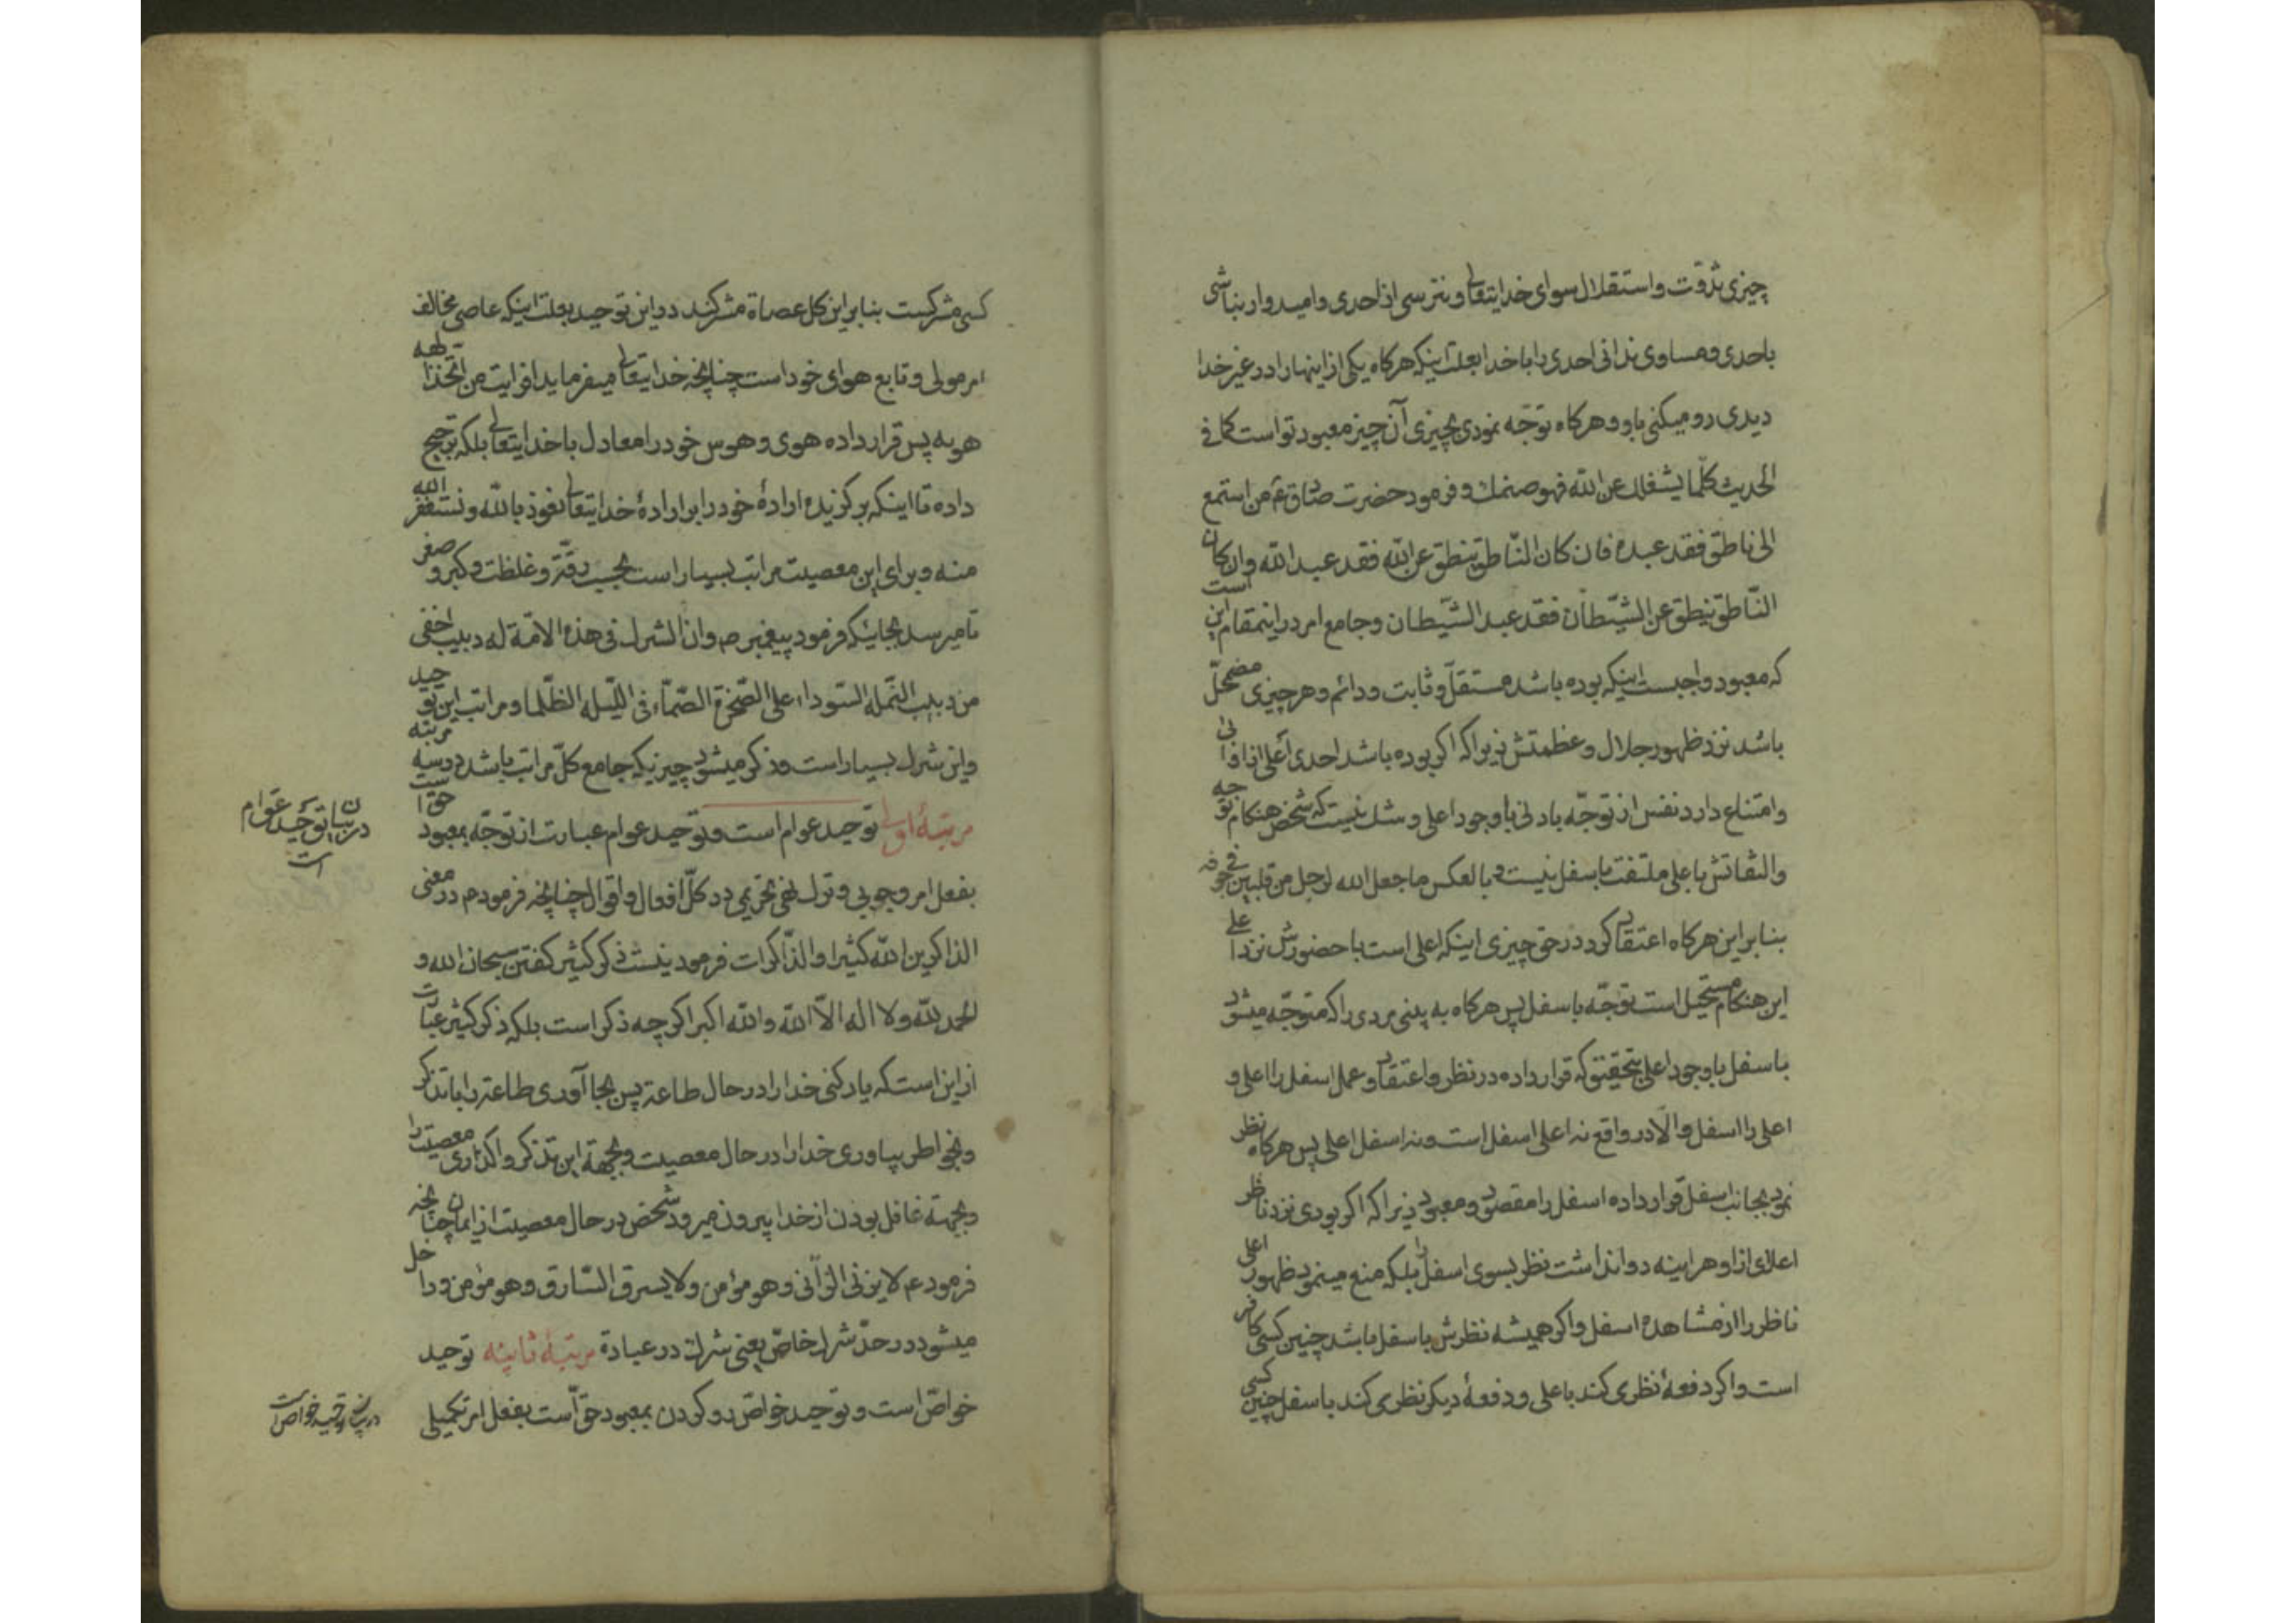 چیزی بذوت و استقلال سوای خدایتعالی و نترسی از احدی و امیدوار نباشی
باحدی و مساوی ندانی احدی را با خدا بعلت اینکه هرکاه یکی از اینها را در غیر خدا
دیدی رو میکنی باو و هرکاه توجّه نمودی بچیزی آن چیز معبود تو است کما فی
الحدیث کلّما یشغلک عن اللّه فهو صنمک و فرمود حضرت صادق ع من استمع
الی ناطق فقد عبده فان کان النّاطق ینطق عن اللّه فقد عبد اللّه و ان کان
النّاطق ینطق عن الشّیطان فقد عبد الشّیطان و جامع امر در اینمقام این است
که معبود واجبست اینکه بوده باشد مستقلّ و ثابت و دائم و هر چیزی مضمحلّ
باشد نزد ظهور جلال و عظمتش زیرا که اکر بوده باشد احدی أعلی از او
وامتناع دارد نفس از توجّه بادنی با وجود اعلی و شک نیست که شخص هنکام توجه
والتفاتش باعلی ملتفت باسفل نیست و بالعکس ما جعل الله لرجل من قلبین فی جوفه
بنابراین هرکاه اعتقاد کرد در حق چیزی اینکه اعلی است با حضورش نزد اعلی
این هنکام مستحیل است توجّه باسفل پس هرکاه به بینی مردی را که متوجّه میشود
باسفل با وجود اعلی بتحقیق که قرار داده در نظر و اعتقاد و عمل اسفل را اعلی و
اعلی را اسفل والّا در واقع نه اعلی اسفل است و نه اسفل اعلی پس هرکاه نظر
نمود بجانب اسفل قرار داده اسفل را مقصود و معبود زیرا که اکر بودی نزد ناظر
اعلای از او هراینه روا نداشت نظر بسوی اسفل را بلکه منع مینمود ظهور اعلی
ناظر را از مشاهده اسفل و اکر همیشه نظرش باسفل باشد چنین کسی کافر
است و اکر دفعهٔ نظری کند باعلی و دفعهٔ دیکر نظری کند باسفل چنین کسی
کسی مشرکست بنابراین کل عصاة مشرکند در این توحید بعلت اینکه عاصی مخالف
امر مولی و تابع هوای خود است چنانچه خدایتعالی میفرماید افرایت من اتّخذ الهه
هویه پس قرار داده هوی و هوس خود را معادل با خدایتعالی بلکه ترجیح
داده تا اینکه برکزیده ارادهٔ خود را بر ارادهٔ خدایتعالی نعوذ باللّه و نستغفر الله
منه و برای این معصیت مراتب بسیار است بحسب رقّة و غلظت و کبر و صغر
تا میرسد بجائیکه فرمود پیغمبر ص و ان الشرک فی هذه الامّة له دبیب اخفی
من دبیب النّملة السّوداء علی الصّخرة الصّمّاء فی اللّیلة الظّلما و مراتب این توحید
واین شرک بسیار است و ذکر میشود چیزیکه جامع کلّ مراتب باشد در سه مرتبه
مرتبهٔ اولی توحید عوام است و توحید عوام عبارت از توجّه بمعبود حق است
بفعل امر وجوبی و ترک نهی تحریمی در کلّ افعال و اقوال چنانچه فرمودم در معنی
الذاکرین اللّه کثیرا و الذّاکرات فرمود نیست ذکر کثیر کفتن سبحان الله و
الحمد للّه و لا اله الّا اللّه و اللّه اکبر اکرچه ذکر است بلکه ذکر کثیر عبارت
از این است که یاد کنی خدا را در حال طاعة پس بجا آوری طاعة را باتذکر
و بخواطر بیاوری خدا را در حال معصیت و بجهة این تذکر واکذاری معصیت را
و بجهة غافل بودن از خدا بیرون میرود شخص در حال معصیت از ایمان چنانچه
فرمود ع لا یزنی الزّانی و هو مؤمن و لا یسرق السّارق و هو مؤمن و داخل
میشود در حدّ شرک خاصّ یعنی شرک در عبادة مرتبهٔ ثانیه توحید
خواصّ است و توحید خواصّ رو کردن بمعبود حقّ است بفعل امر تکمیلی
در بیان توحید عوام
است
در بیان توحید خواص است